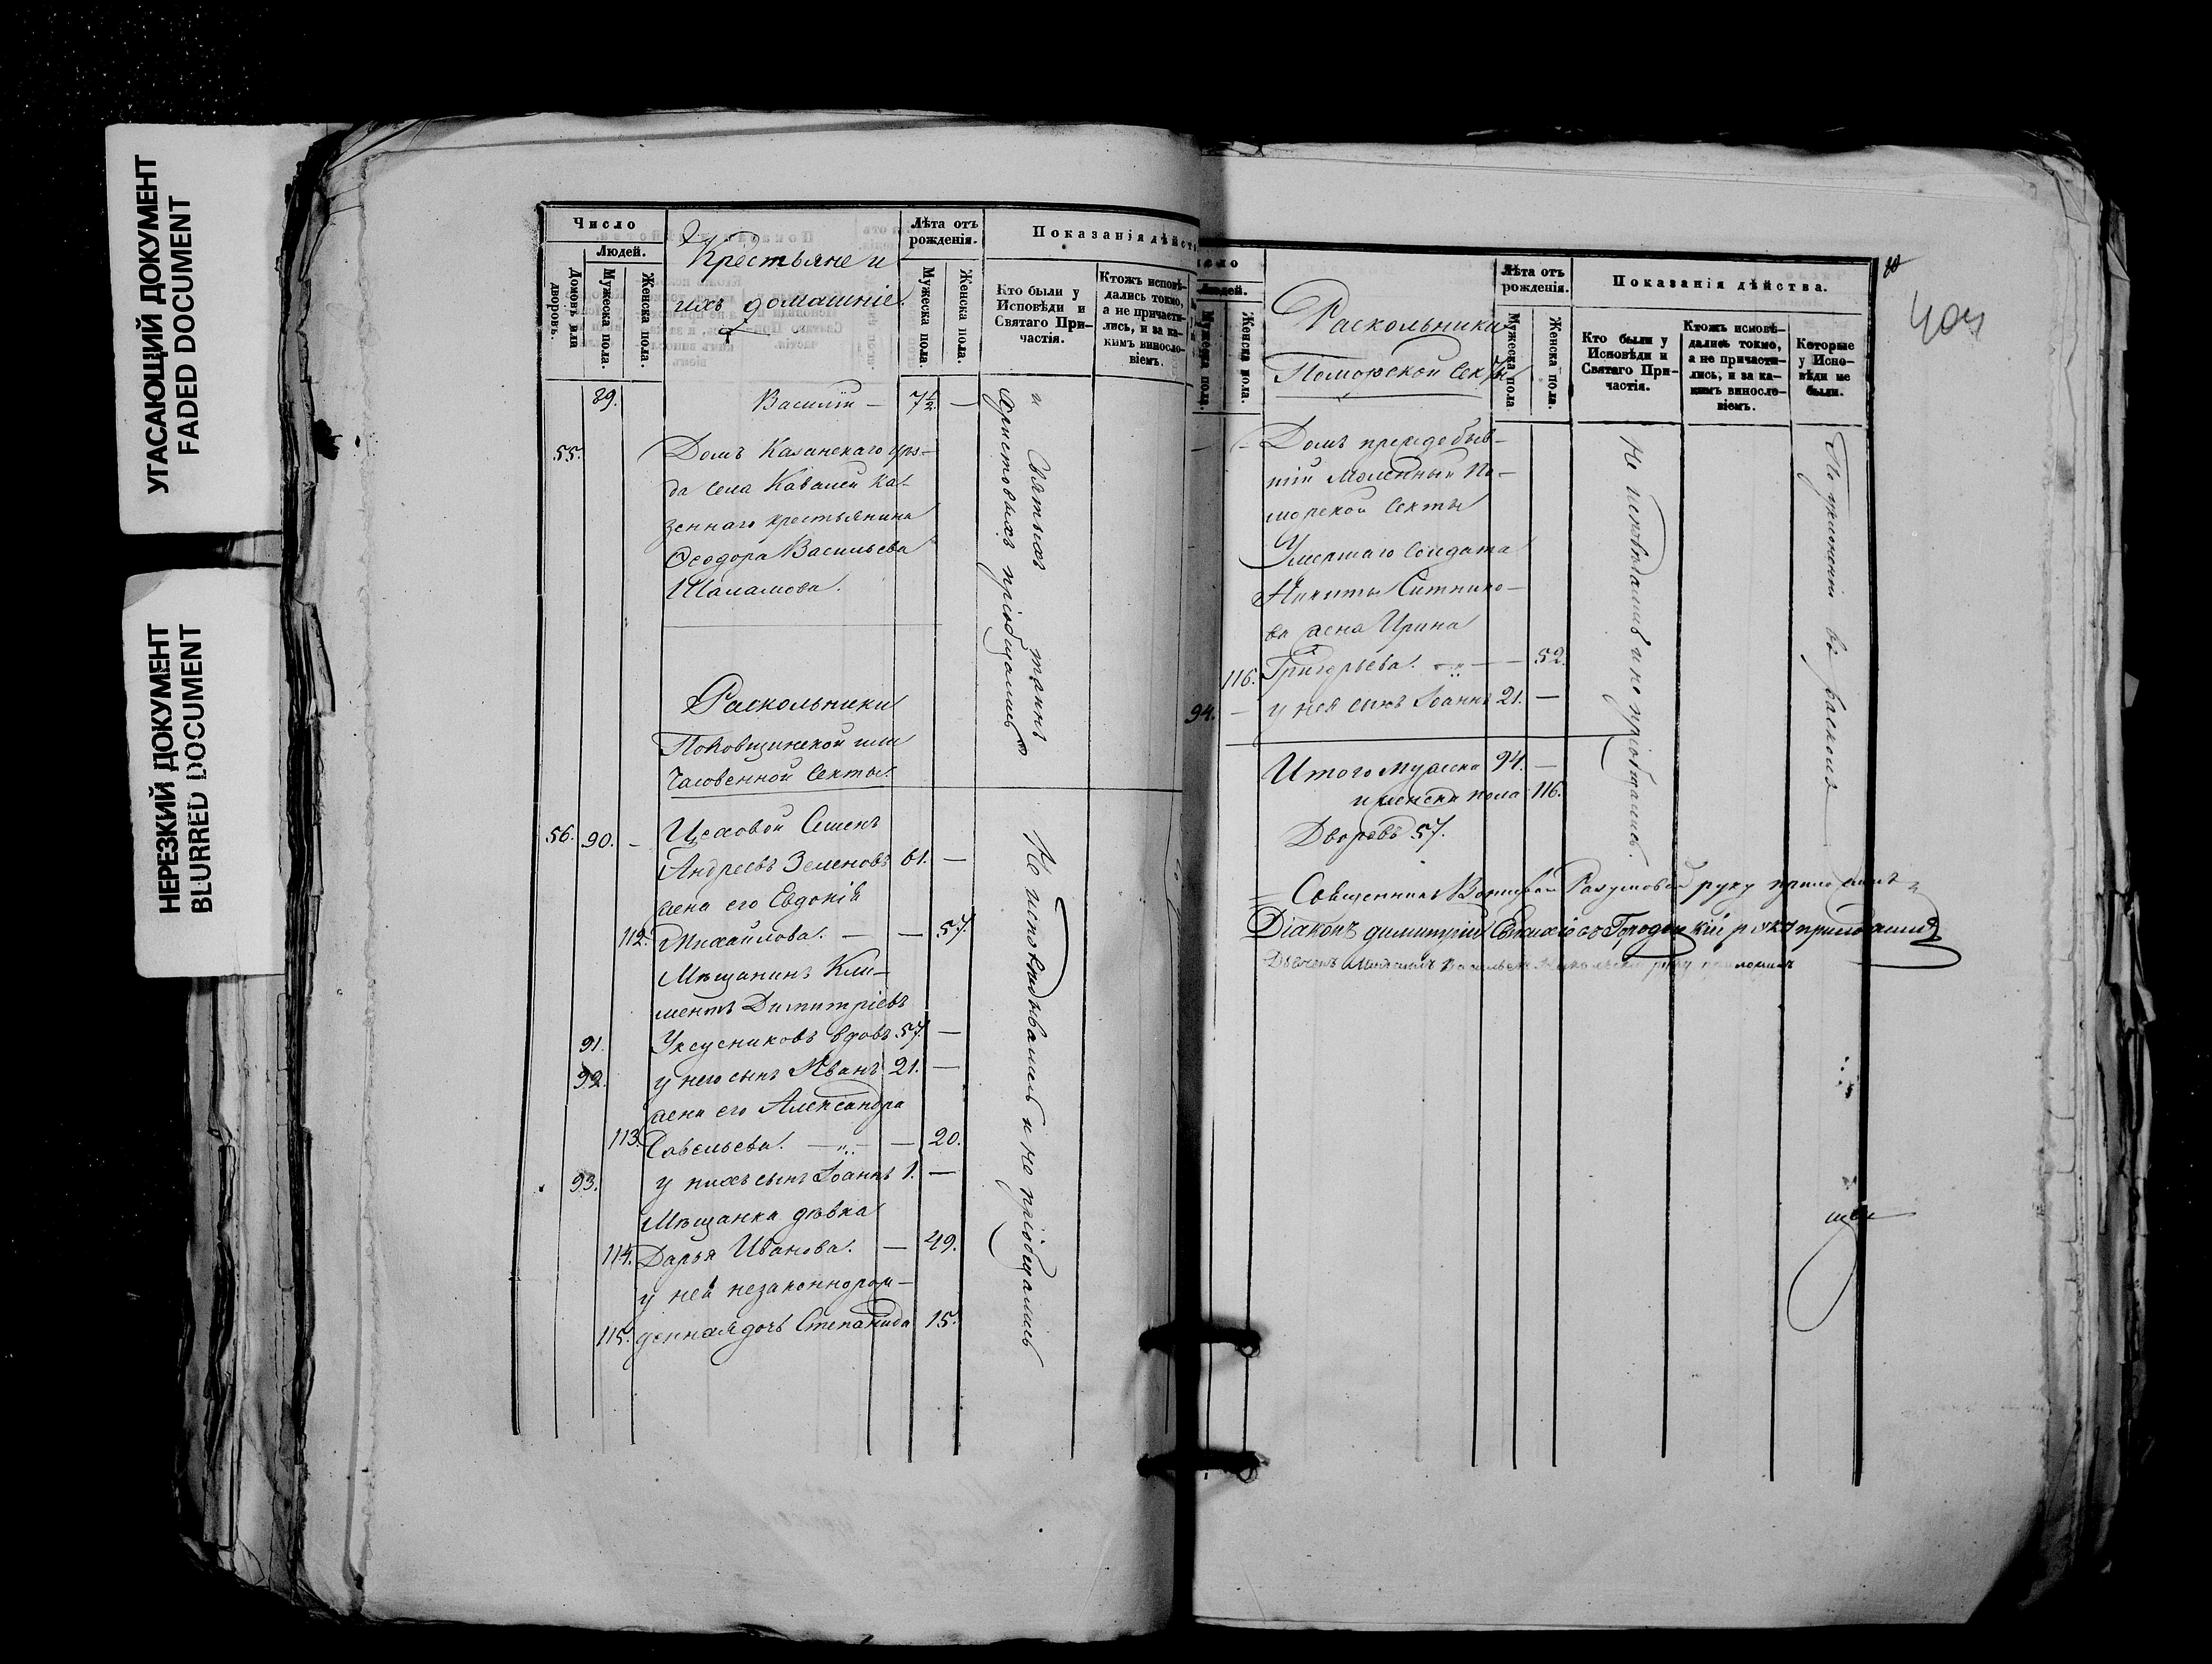 УГАСАЮЩИЙ ДОКУМЕНТ
FADED DOCUMENT
НЕРЕЗКИЙ ДОКУМЕНТ
BLURRED DOCUMENT
Число
Людей.
Домовъ или дворовъ.
Мужеска пола.
Женска пола.
Крестьяне и
ихъ домашніе.
Лѣта отъ рожденія.
Мужеска пола.
Женска пола.
Показанія дѣйст
Кто были у Исповѣди и Святаго Причастія.
Ктожъ исповѣдались токмо, а не причастились, и за какимъ винословіемъ.
89. Василій — 7½ —
55. Домъ Казанскаго уѣз-
да села Кавалей ка-
зеннаго крестьянина
Ѳеодора Васильева
Шаламова.
и Святыхъ таинъ
Христовыхъ пріобщались
Раскольники
Поповщинской или
Часовенной Секты.
56. 90. — Цеховой Семенъ
Андреевъ Зеленовъ 61. —
жена его Евдокія
112. Михайлова. — — 57.
Мѣщанинъ Кли-
ментъ Димитріевъ
91. Уксусниковъ вдовъ 57. —
92. у него сынъ Иванъ 21. —
жена его Александра
113. Савельева. — — 20.
93. у нихъ сынъ Іоаннъ 1. —
Мѣщанка дѣвка
114. Дарья Иванова. — 49.
у ней незаконнорож-
115. денная дочь Степанида 15.
Не исповѣдывались и не пріобщались
80
404
Людей.
Мужеска пола.
Женска пола.
Раскольники
Поморской Секты
Лѣта отъ рожденія.
Мужеска пола
Женска пола.
Показанія дѣйства.
Кто были у Исповѣди и Святаго Причастія.
Ктожъ исповѣдались токмо, а не причастились, и за какимъ винословіемъ.
Которые у Исповѣди не были.
— — Домъ преждебыв-
шій Моленный По-
морской Секты
Умершаго Солдата
Никиты Ситнико-
ва жена Ирина
116. Григорьева. — — 52.
94. — у нея сынъ Іоаннъ 21. —
Не исповѣдались и не пріобщались.
По уклоненію въ расколъ
Итого мужеска 94. —
и женска пола 116.
Дворовъ 57.
Священникъ руку приложилъ
Діаконъ Димитрій Городецкій руку приложилъ
руку приложилъ